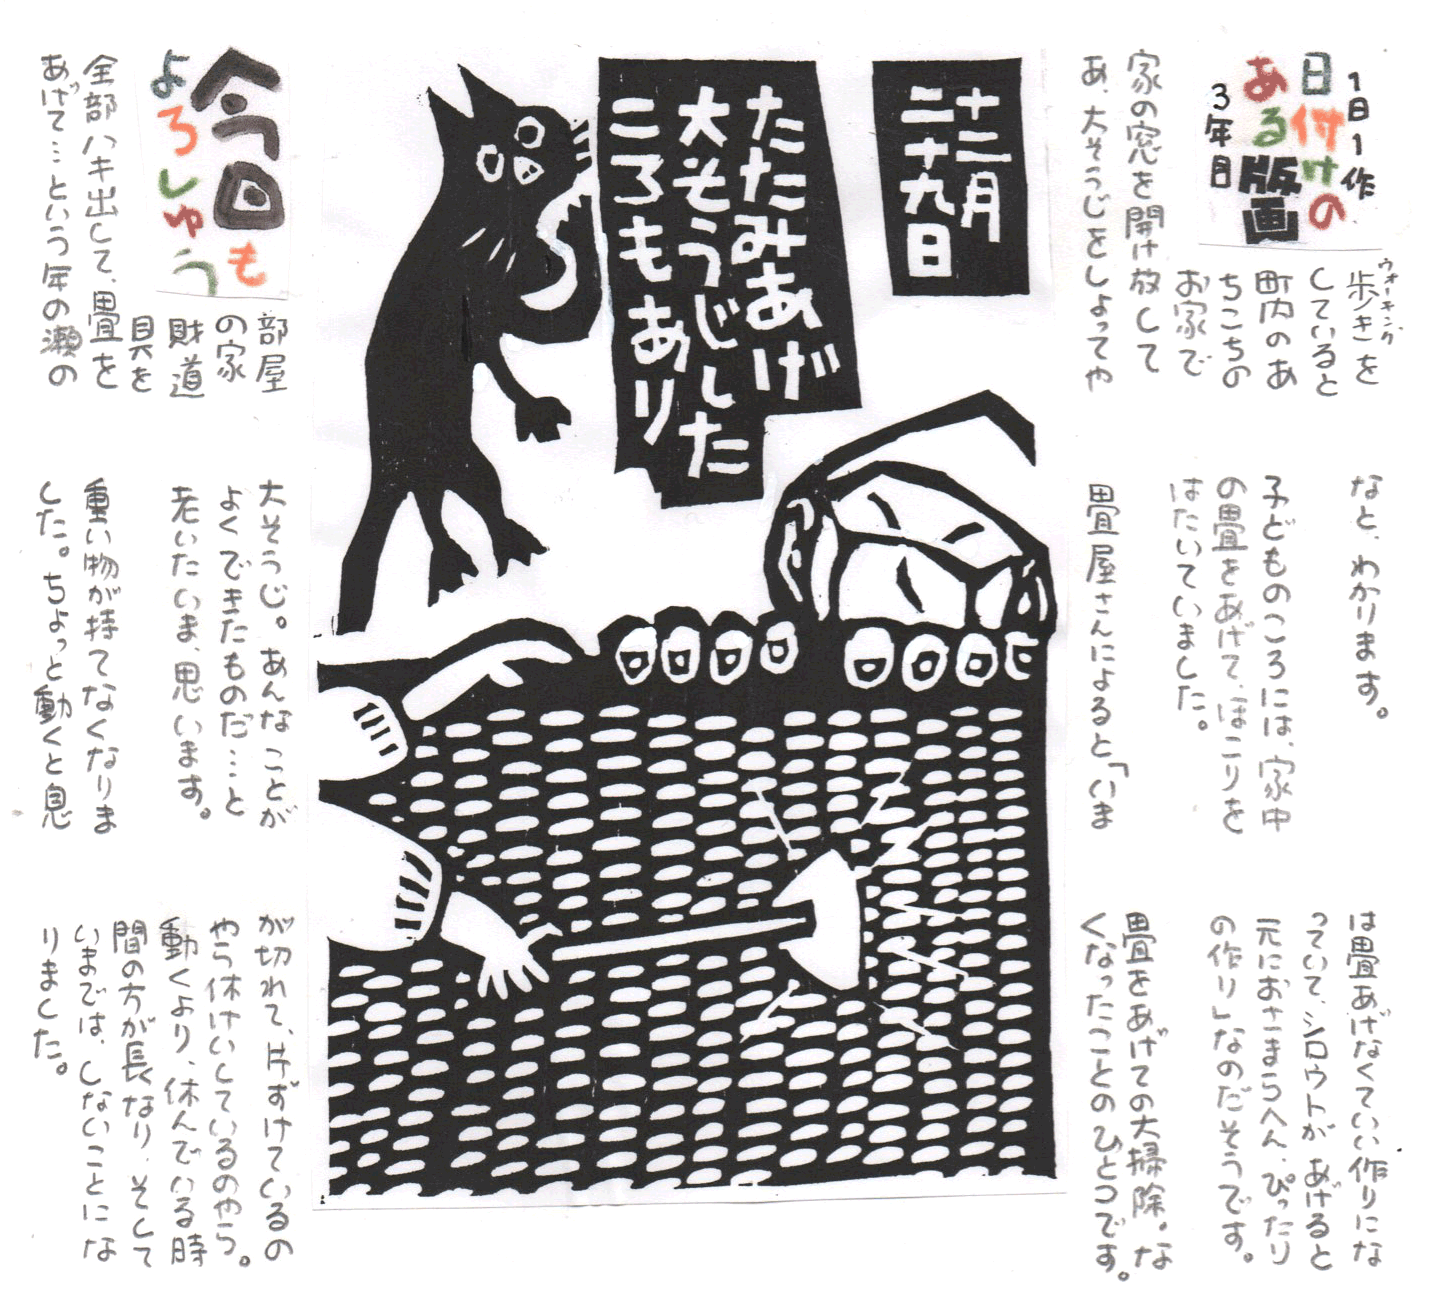 1日1作
日付けの
ある版画
3年目
歩きを
ウォーキング
していると
町内のあ
ちこちの
お家で
家の窓を開け放して
あ、大そうじをしょってや
なと、わかります。
子どものころには、家中
の畳をあげて、ほこりを
はたいていました。
畳屋さんによると「いま
は畳あげなくていい作りにな
っていて、シロウトがあげると
元におさまらへん、ぴったり
の作り」なのだそうです。
畳をあげての大掃除。な
くなったことのひとつです。
十二月
二十九日
たたみあげ
大そうじした
ころもあり
今回も
よろしゅう
部屋
の家
財道
具を
全部ハキ出して、畳を
あげて…という年の瀬の
大そうじ。あんなことが
よくできたものだ…と
老いたいま、思います。
重い物が持てなくなりま
した。ちょっと動くと息
が切れて、片ずけているの
やら休けいしているのやら。
動くより、休んでいる時
間の方が長なり、そして
いまでは、しないことにな
りました。